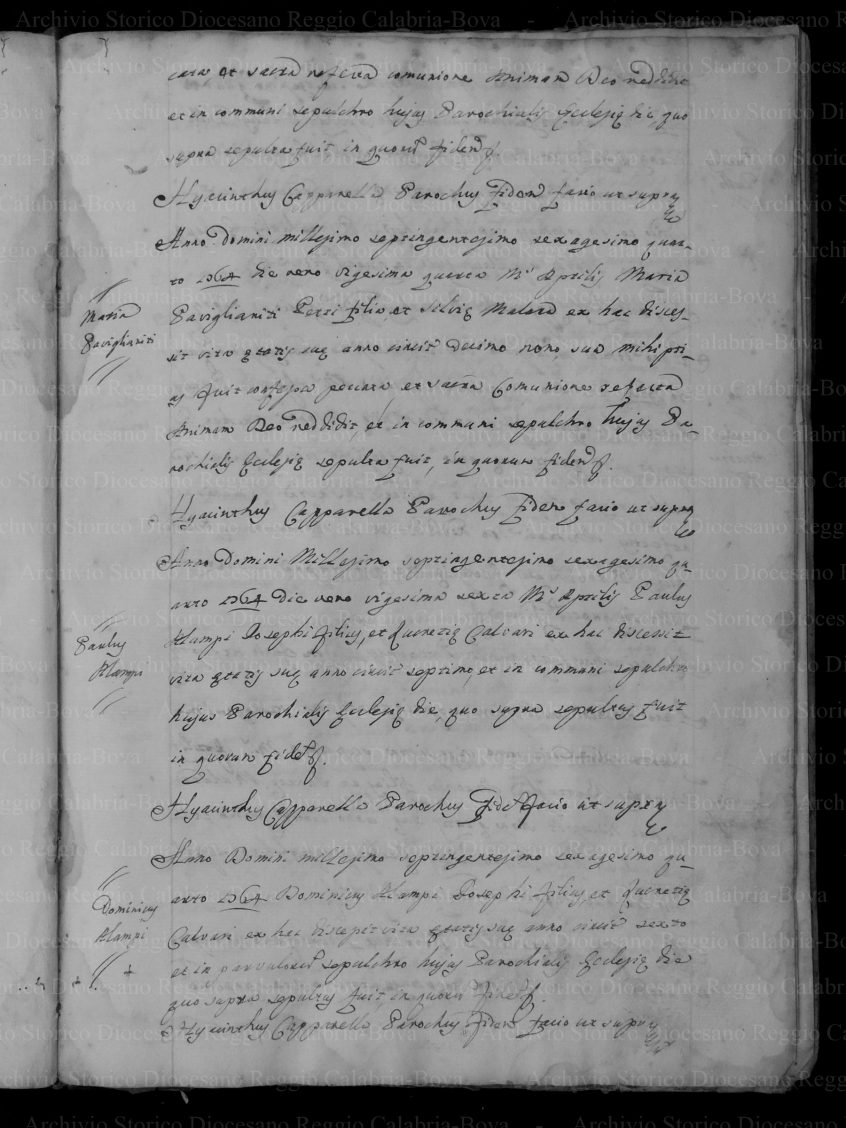 cata, et sacra refecta comunione Animam Deo reddidit
et in communi sepulchro hujus Parochialis Ecclesię die, quo
supra sepulta fuit in quorum fidem
Hyacinthus Capparello Parochus Fidem facio ut supra
Anno Domini millesimo septingentesimo sexagesimo quar-
to 1764 die vero vigesima quarta M.s Aprilis Maria
Paviglianiti Petri filia et Silvię ex hac disces-
sit vita ętatis suę anno circit decimo nono, sua mihi pri-
us fuit confessa peccata, et sacra Comunione refecta
Animam Deo reddidit, et in communi sepulchro hujus Pa-
rochialis Ecclesię sepulta fuit, in quorum fidem
Hyacinthus Capparello Parochus Fidem facio ut supra
Anno Domini Millesimo septingentesimo sexagesimo qu-
arto 1764 die vero vigesima sexta M.s Aprilis Paulus
Alampi Josephi filius, et Lucretię Calvari ex hac discessit
vita ętatis suę anno circit septimo, et in communi sepulchro
hujus Parochialis Ecclesię die, quo supra sepultus fuit
in quorum fidem
Hyacinthus Capparello Parochus Fidem facio ut supra
Anno Domini millesimo septingentesimo sexagesimo qu-
arto 1764 Dominicus Alampi Josephi filius, et Lucretię
Calvari ex hac discessit vita ętatis suę anno circit sexto
et in parvulorum sepulchro hujus Parochialis Ecclesię die
quo supra sepultus fuit in quorum fidem
Hyacinthus Capparello Parochus Fidem facio ut supra
Maria
Paviglianiti
Paulus
Alampi
Dominicus
Alampi
+
+
Archivio Storico Diocesano Reggio Calabria-Bova